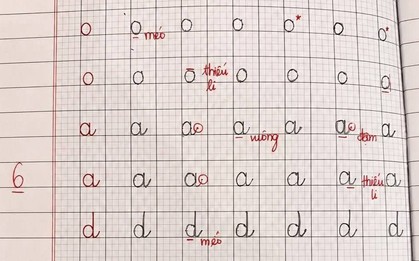 o o méo o o o* o o*
o o o thiếu li o o o o
a a a a vuông a a đậm a
6 a a a a a a thiếu li a
d d d méo d d d d